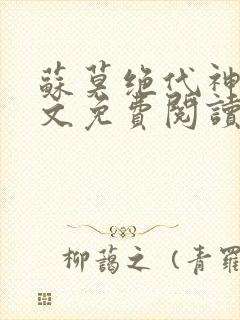 蘇莫绝代神
文免費閱讀
柳藹之（青羅